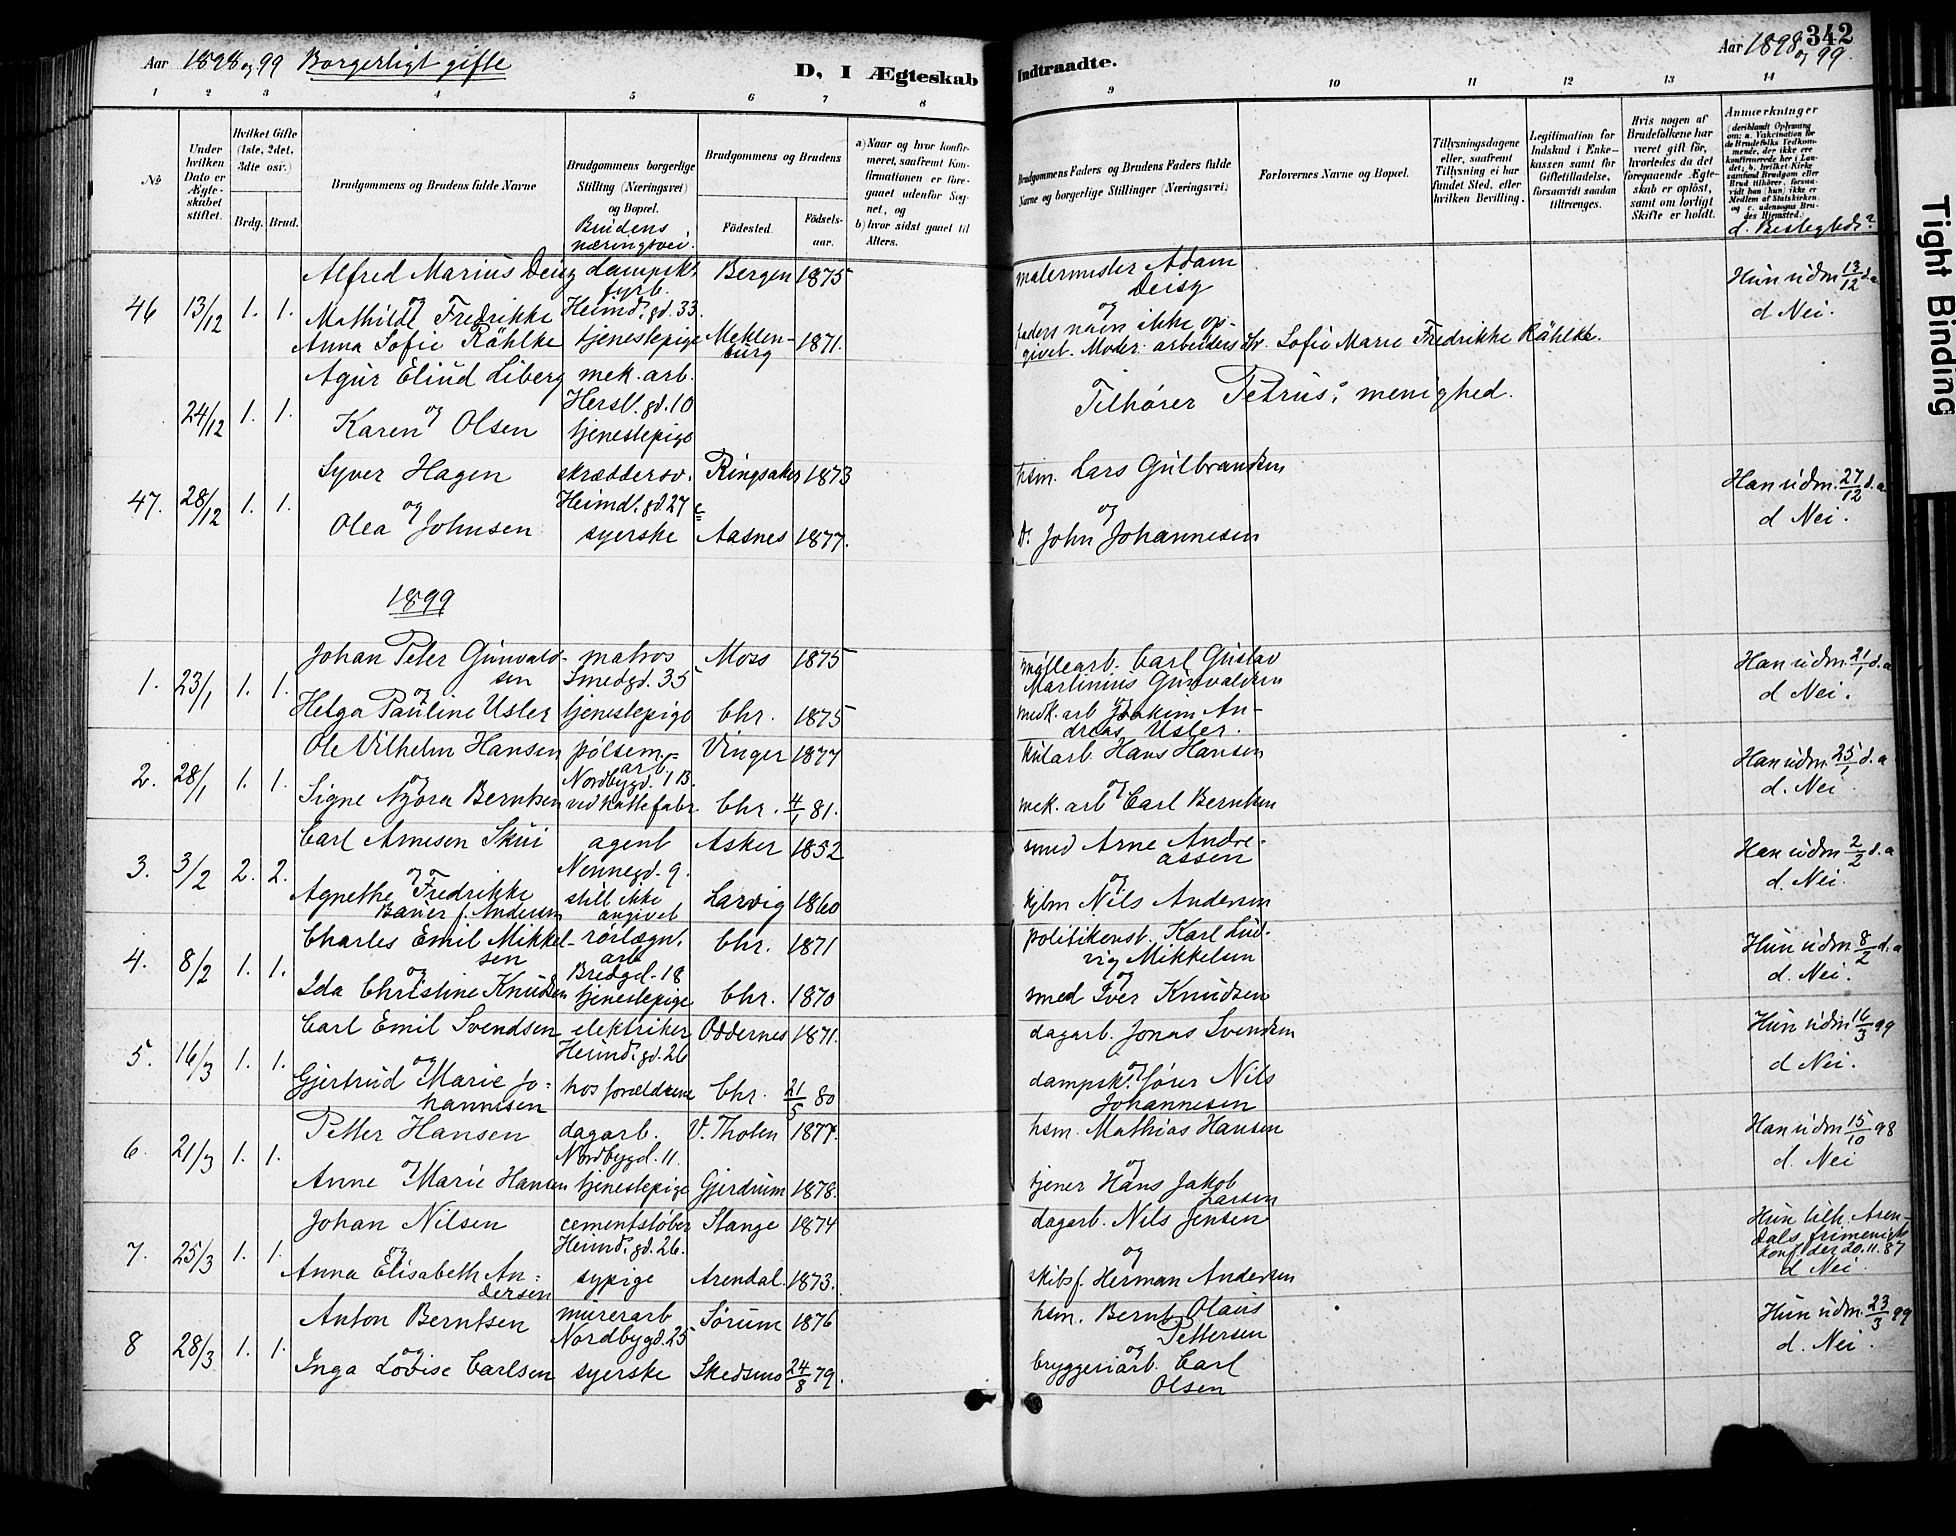 Aar 1898 og 99 Borgerligt gifte
D, I Ægteskab
1 2 3 4 5 6 7 8
№
Under hvilken Dato er Ægteskabet stiftet.
Hvilket Gifte (1ste, 2det, 3die osv.)
Brdg. Brud.
Brudgommens og Brudens fulde Navne
Brudgommens borgerlige Stilling (Næringsvei) og Bopæl.
Brudens næringsvei.
Brudgommens og Brudens
Fødested.
Fødselsaar.
a) Naar og hvor konfirmeret, saafremt Konfirmationen er foregaaet udenfor Sognet, og
b) hvor sidst gaaet til Alters.
46 13/12 1. 1.
Alfred Marius Deisz dampsk. fyrb. Bergen 1875
og Heimd. gd. 33.
Mathilde Fredrikke
Anna Sofie Rählke tjenestepige Meklenburg 1871.
24/12 1. 1.
Agur Eliud Liberg mek. arb.
og Hersl. gd. 10
Karen Olsen tjenestepige
47. 28/12 1. 1.
Syver Hagen skræddersv. Ringsaker 1873
og Heimdl. gd. 27 c
Olea Johnsen syerske Aasnes 1877.
1899
1. 23/1 1. 1.
Johan Peter Gunvaldsen matros Moss 1875
og Smedgd. 35
Helga Pauline Usler tjenestepige Chr. 1875
2. 28/1 1. 1.
Ole Vilhelm Hansen pølsem.arb. Vinger 1877
og Nordbygd. 13.
Signe Berntsen ved hattefabr Chr. 4/1 81.
3. 3/2 2. 2.
Carl Arnesen Skui agent Asker 1852
og Nonnegd. 9.
Agnethe Fredrikke still ikke Larvig 1860
Bauer f. Andersen angivet
4. 8/2 1. 1.
Charles Emil Mikkelsen rørlægn. arb Chr. 1871
og Bredgd. 18
Ida Christine Knudsen tjenestepige Chr. 1870
5. 16/3 1. 1.
Carl Emil Svendsen elektriker Oddernes 1871.
og Heimd. gd. 26
Gjertrud Marie Johannesen hos forældrene Chr. 21/5 80
6. 21/3 1. 1.
Petter Hansen dagarb. V. Thoten 1877.
og Nordbygd. 11.
Anne Marie Hansen tjenestepige Gjerdrum 1878.
7. 25/3 1. 1.
Johan Nilsen cementstøber Stange 1874
og Heimd. gd. 26.
Anna Elisabeth Andersen sypige Arendal. 1873.
8 28/3 1. 1.
Anton Berntsen murerarb Sørum 1876
og Nordbygd. 25
Inga Lovise Carlsen syerske Skedsmo 24/8 79.
Indtraadte.
Aar 1898 og 99.
342
9 10 11 12 13 14
Brudgommens Faders og Brudens Faders fulde Navne og borgerlige Stillinger (Næringsvei).
Forlovernes Navne og Bopæl.
Tillysningsdagene eller, saafremt Tillysning ei har fundet Sted, efter hvilken Bevilling.
Legitimation for Indskud i Enkekassen samt for Giftetilladelse, forsaavidt saadan tiltrænges.
Hvis nogen af Brudefolkene har været gift før, hvorledes da det foregaaende Ægteskab er opløst, samt om lovligt Skifte er holdt.
Anmerkninger (deriblandt Oplysning om: a. Vakcination for de Brudefolks Vedkommende, der ikke ere konfirmerede her i Landet; b. hvilket Kirkesamfund Brudgom eller Brud tilhører, forsaavidt han (hun) ikke er Medlem af Statskirken, og c. udensogns Brudes Hjemsted.)
d. Beslegtede?
malermester Adam Deisz
og
faders navn ikke opgivet. Moder: arbeiderske. Sofie Marie Fredrikke Rählke.
Hun udm. 13/12 d. a
d Nei.
Tilhører Petrus' menighed.
hsm. Lars Gulbrandsen
og
Do John Johannesen
Han udm. 27/12 d. a.
d Nei.
møllearb. Carl Gustav Martinius Gunvaldsen
og
mek. arb Joakim Andreas Usler.
Han udm. 21/1 d. a
d Nei.
kularb. Hans Hansen
og
mek. arb Carl Berntsen
Han udm. 25/1 d. a
d. Nei.
smed Arne Andreassen
og
kjbm Nils Andersen
Han udm. 2/2 d. a
d. Nei.
politikonst. Karl Ludvig Mikkelsen
og
smed Iver Knudsen
Hun udm. 8/2 d. a
d. Nei.
dagarb. Jonas Svendsen
og
dampsk. fører Nils Johannesen
Hun udm. 16/3 99
d Nei.
hsm. Mathias Hansen
og
tjener Hans Jakob Larsen
Han udm. 15/10 98
d. Nei
dagarb. Nils Jensen
og
skibsf. Herman Andersen
Hun tilh. Arendals frimenigh
konf. der 20.11.87
d Nei.
hsm. Bernt Olaus Pettersen
og
bryggeriarb. Carl Olsen
Hun udm. 23/3 99
d. Nei.
Tight Binding